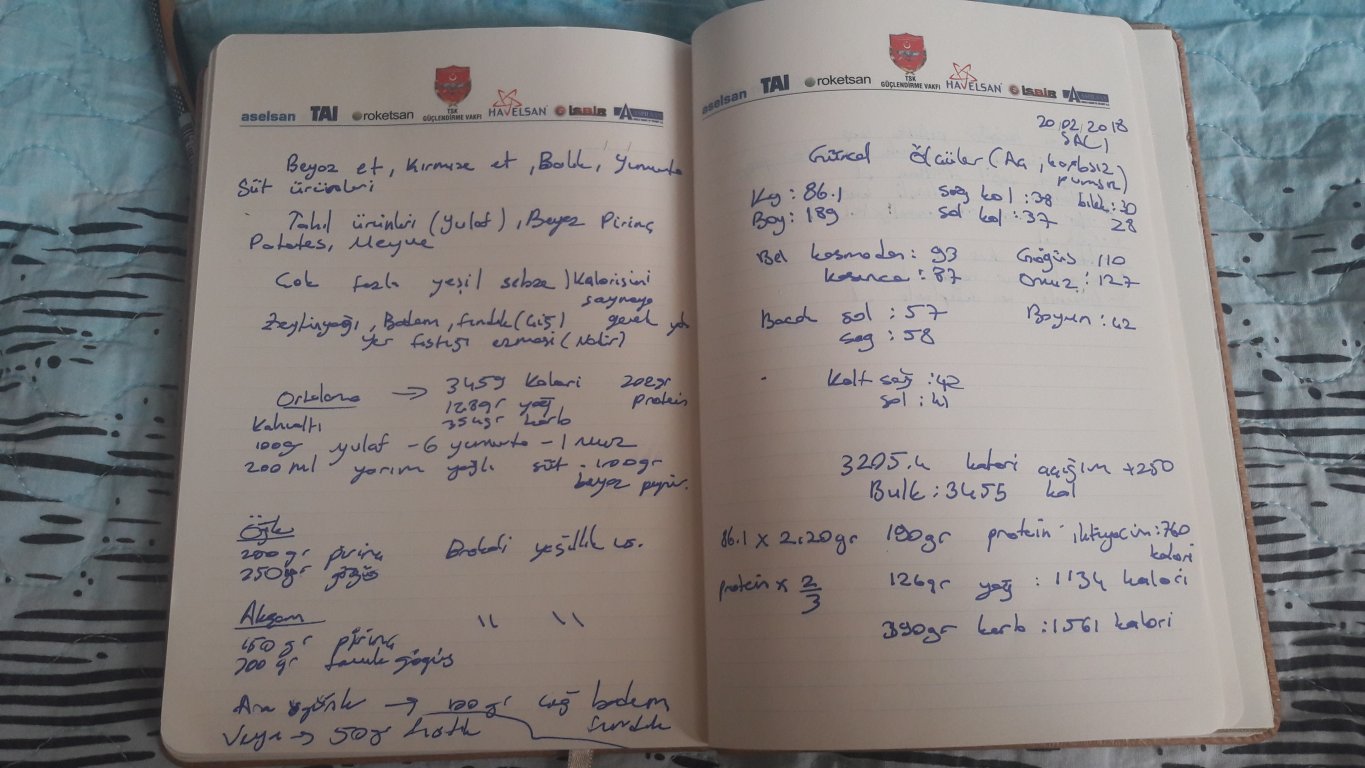 aselsan TAI roketsan TSK GÜÇLENDİRME VAKFI HAVELSAN İŞBİR
Beyaz et, Kırmızı et, Balık, Yumurta
Süt ürünleri
Tahıl ürünleri (yulaf), Beyaz Pirinç
Patates, Meyve
Çok fazla yeşil sebze) Kalorisini
saymaya
gerek yok
Zeytinyağı, Badem, fındık (Çiğ)
yer fıstığı ezmesi (Nadir)
Ortalama → 3459 kalori 202gr
128gr yağ protein
354gr karb
Kahvaltı
100gr yulaf - 6 yumurta - 1 muz
200 ml yarım yağlı süt - 100gr
beyaz peynir.
Öğle
200 gr pirinç Brokoli yeşillik vs.
250gr göğüs
Akşam " "
150 gr pirinç
200 gr tavuk göğüs
Ara öğünler → 100gr çiğ badem
Veya → 50gr fındık
aselsan TAI roketsan TSK GÜÇLENDİRME VAKFI HAVELSAN İŞBİR
20.02.2018
SALI
Güncel Ölçüler (Aç, karbsız
pumpsız)
Kg: 86.1 sağ kol: 38 bilek: 30
Boy: 189 sol kol: 37 28
Bel kasmadan: 93 Göğüs 110
kasınca: 87 Omuz: 127
Bacak sol: 57 Boyun: 42
sağ: 58
Kalf sağ: 42
sol: 41
3205.4 kalori açığım +250
Bulk: 3455 kal
86.1 x 2.20gr 190gr protein ihtiyacım: 760
kalori
protein x 2/3 126gr yağ: 1134 kalori
390gr karb: 1561 kalori